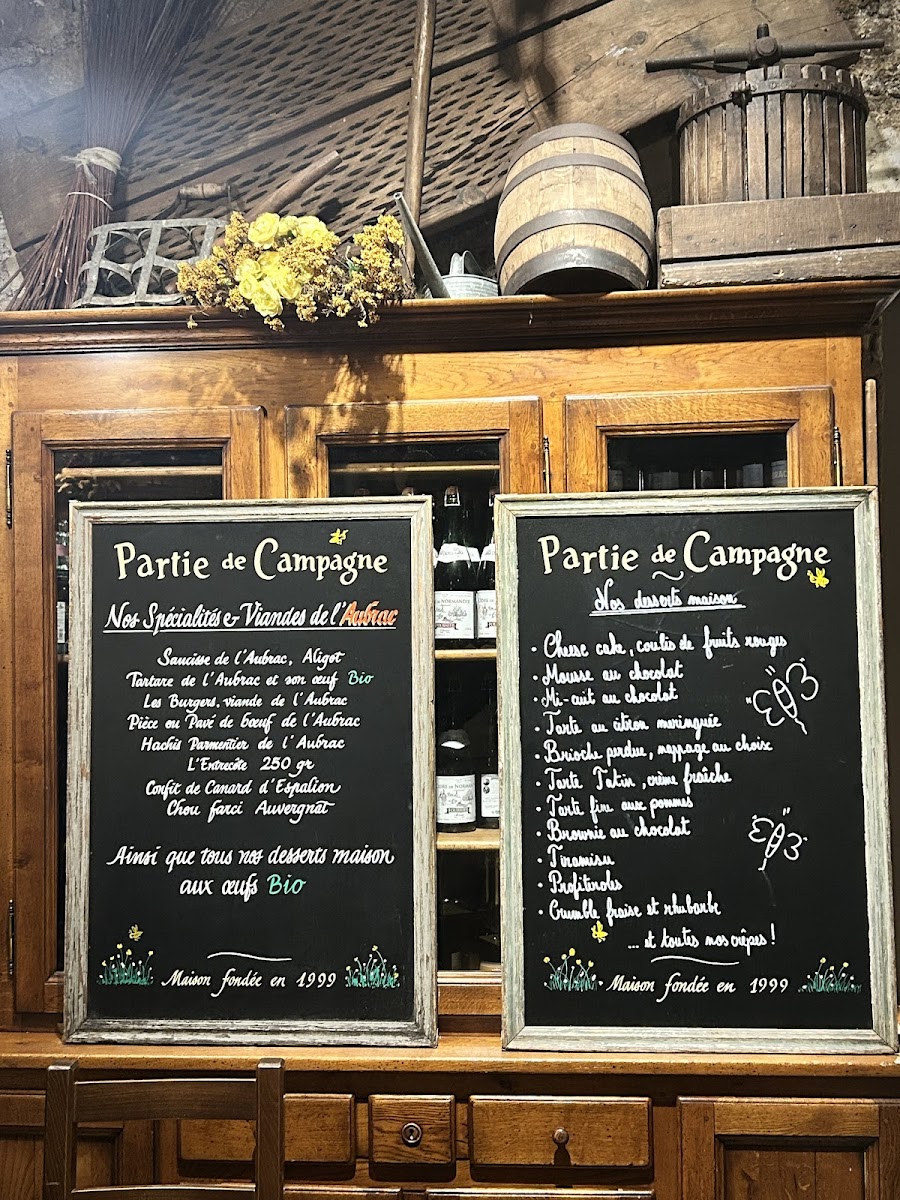 Partie de Campagne
Nos Spécialités & Viandes de l'Aubrac
Saucisse de l'Aubrac, Aligot
Tartare de l'Aubrac et son œuf Bio
Les Burgers, viande de l'Aubrac
Pièce ou Pavé de bœuf de l'Aubrac
Hachis Parmentier de l'Aubrac
L'Entrecôte 250 gr
Confit de Canard d'Espalion
Chou farci Auvergnat
Ainsi que tous nos desserts maison
aux œufs Bio
Maison fondée en 1999
Partie de Campagne
Nos desserts maison
• Cheese cake, coulis de fruits rouges
• Mousse au chocolat
• Mi-cuit au chocolat
• Tarte au citron meringuée
• Brioche perdue, nappage au choix
• Tarte Tatin, crème fraîche
• Tarte fine aux pommes
• Brownie au chocolat
• Tiramisu
• Profiteroles
• Crumble fraise et rhubarbe
... et toutes nos crêpes !
Maison fondée en 1999